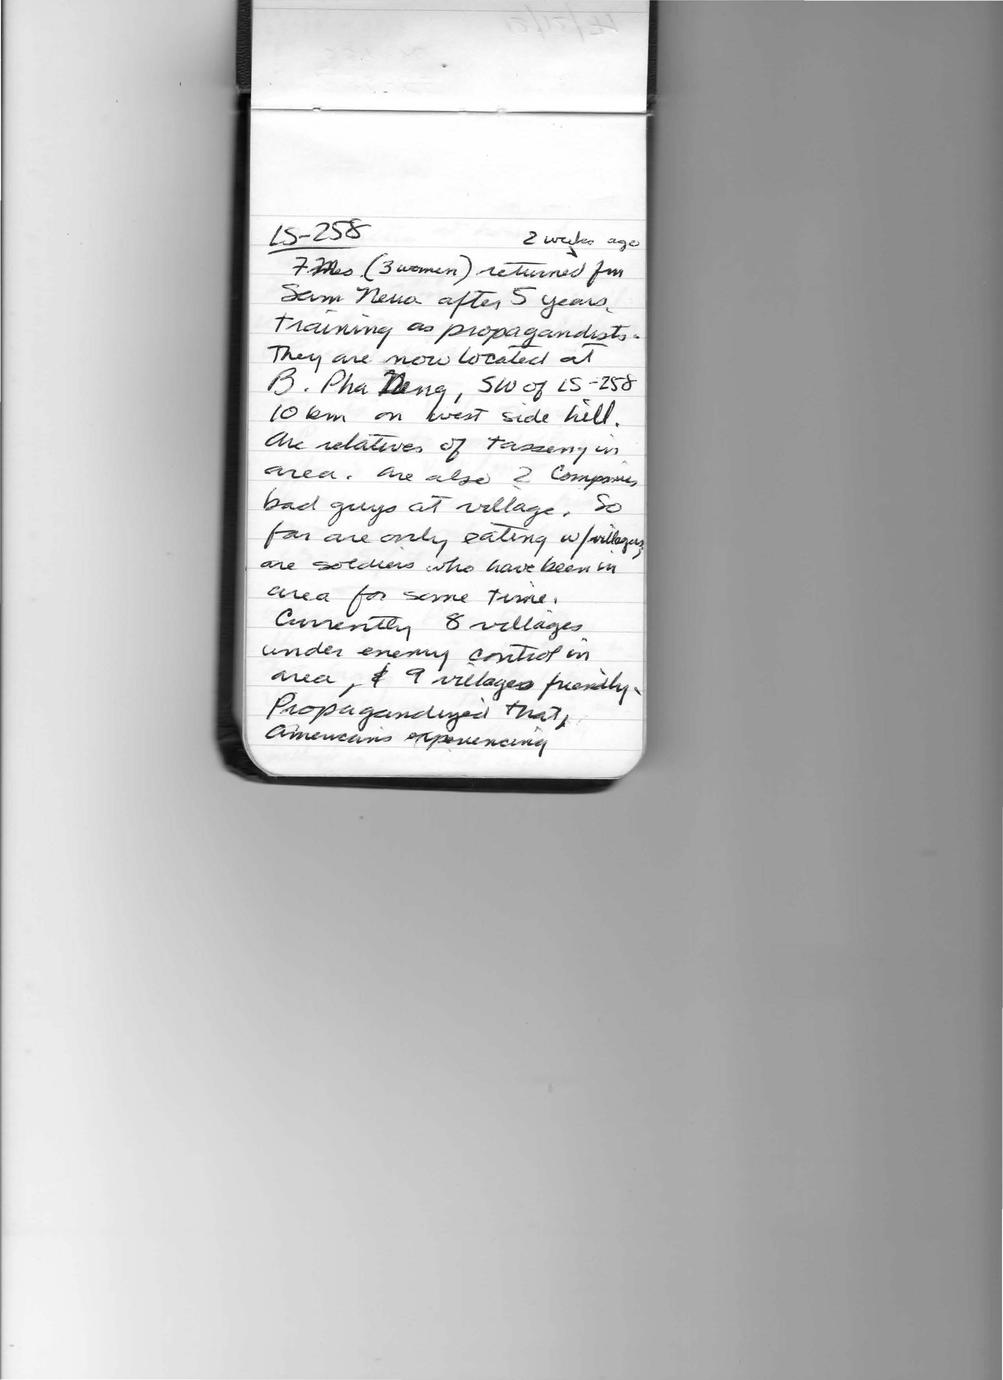 LS-258
2 weeks ago
7 Meo (3 women) returned fm
Sam Neua after 5 years
training as propagandists.
They are now located at
B. Pha Deng, SW of LS-258
10 km on west side hill.
Are relatives of tasseng in
area. Are also 2 Companies
bad guys at village. So
far are only eating w/villagers,
are soldiers who have been in
area for some time.
Currently 8 villages
under enemy control in
area, & 9 villages friendly.
Propagandized that,
Americans experiencing